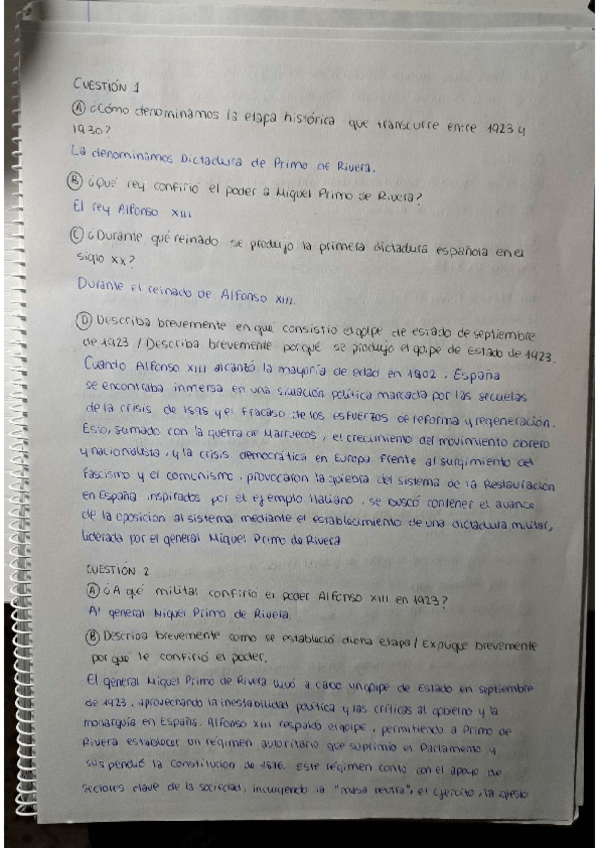 CUESTIÓN 1
Ⓐ ¿Cómo denominamos la etapa histórica que transcurre entre 1923 y
1930?
La denominamos Dictadura de Primo de Rivera.
Ⓑ ¿Qué rey confirió el poder a Miguel Primo de Rivera?
El rey Alfonso XIII
Ⓒ ¿Durante qué reinado se produjo la primera dictadura española en el
siglo XX?
Durante el reinado de Alfonso XIII.
Ⓓ Describa brevemente en que consistió el golpe de estado de septiembre
de 1923 / Describa brevemente porqué se produjo el golpe de Estado de 1923.
Cuando Alfonso XIII alcantó la mayoría de edad en 1902, España
se encontraba inmersa en una situación política marcada por las secuelas
de la crisis de 1898 y el fracaso de los esfuerzos de reforma y regeneración.
Esto, sumado con la guerra de Marruecos, el crecimiento del movimiento obrero
y nacionalista, y la crisis democrática en Europa frente al surgimiento del
fascismo y el comunismo, provocaron la quiebra del sistema de la Restauración
en España inspirados por el ejemplo italiano, se buscó contener el avance
de la oposición al sistema mediante el establecimiento de una dictadura militar,
liderada por el general Miguel Primo de Rivera
CUESTIÓN 2
Ⓐ ¿A qué militar confirió el poder Alfonso XIII en 1923?
Al general Miguel Primo de Rivera.
Ⓑ Describa brevemente como se estableció dicha etapa / Explique brevemente
por qué le confirió el poder.
El general Miguel Primo de Rivera llevó a cabo un golpe de Estado en septiembre
de 1923, aprovechando la inestabilidad política y las críticas al gobierno y la
monarquía en España. Alfonso XIII respaldó el golpe, permitiendo a Primo de
Rivera establecer un régimen autoritario que suprimió el Parlamento y
suspendió la Constitución de 1876. Este régimen contó con el apoyo de
sectores clave de la sociedad, incluyendo la "masa neutra", el Ejército, la